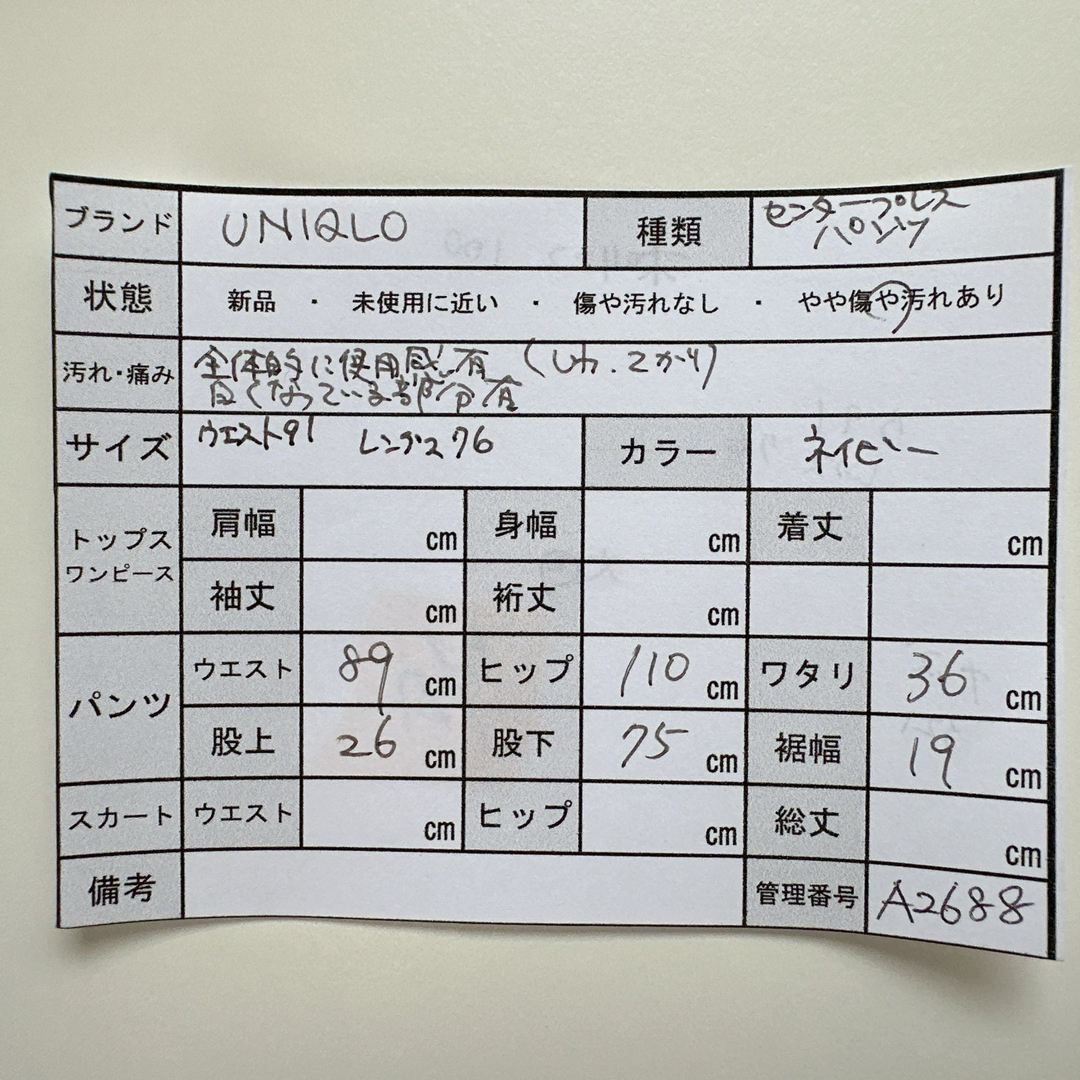 ブランド UNIQLO 種類 センタープレス
パンツ
状態 新品 ・ 未使用に近い ・ 傷や汚れなし ・ やや傷や汚れあり
汚れ・痛み 全体的に使用感有 (しわ.てかり)
白くなっている部分有
サイズ ウエスト91 レングス76 カラー ネイビー
トップス
ワンピース
肩幅 cm 身幅 cm 着丈 cm
袖丈 cm 裄丈 cm
パンツ
ウエスト 89 cm ヒップ 110 cm ワタリ 36 cm
股上 26 cm 股下 75 cm 裾幅 19 cm
スカート ウエスト cm ヒップ cm 総丈 cm
備考 管理番号 A2688